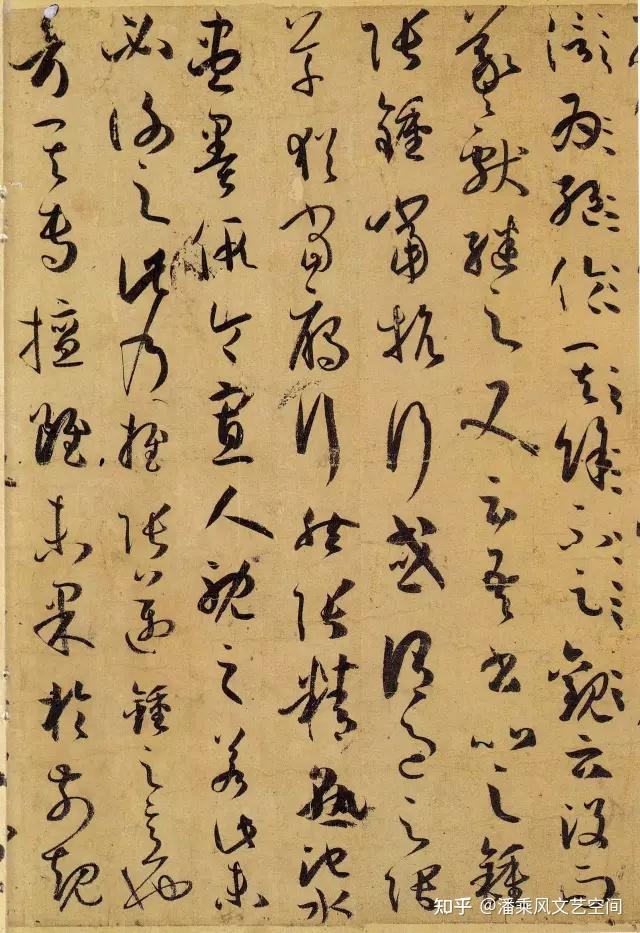 為絕倫其餘不足觀云沒而
羲獻繼之又云吾書比之鍾
張鍾當抗行或謂過之張
草猶當雁行然張精熟池水
盡墨假令寡人耽之若此未
必謝之此乃推張邁鍾之意也
考其專擅雖未果於前規
知乎 @潘乘风文艺空间